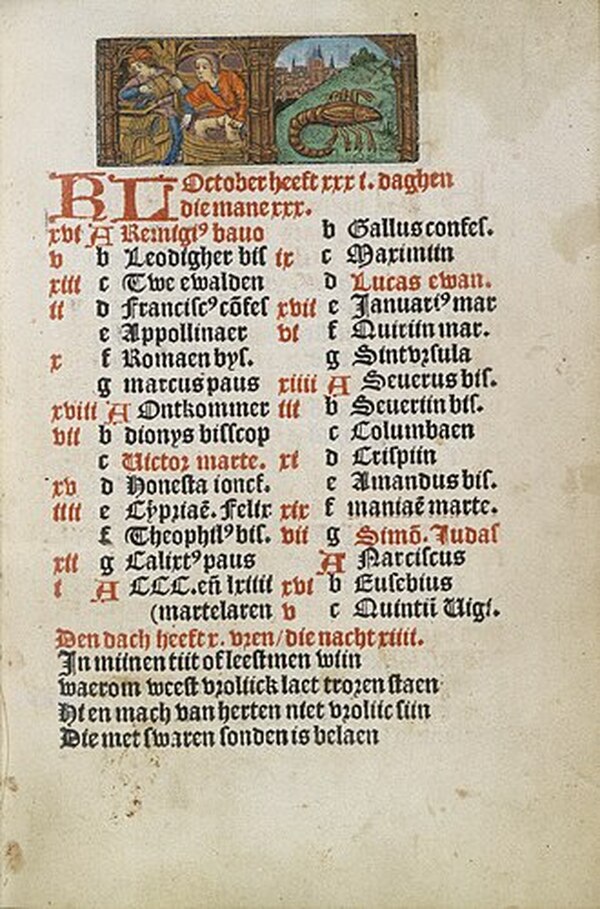 KL October heeft xxx i. daghen
die mane xxx.
xvi A Remigiꝰ bavo
v b Leodigher bis
xiii c Twe ewalden
ii d Franciscꝰ cōfes
e Appollinaer
x f Romaen bys.
g marcus paus
xviii A Ontkommer
vii b dionys bisscop
c Uictor marte.
xv d Honesta ioncf.
iiii e Cypriaē. Felix
f Theophilꝰ bis.
xii g Calixtꝰ paus
i A CCC. eñ lxiiii
(martelaren
b Gallus confes.
ix c Maximiin
d Lucas ewan.
xvii e Januariꝰ mar
vi f Quiriin mar.
g Sint vrsula
xiiii A Seuerus bis.
iii b Seueriin bis.
c Columbaen
xi d Crispiin
e Amandus bis.
xix f maniaē marte.
vii g Simō. Iudas
A Narciscus
xvi b Eusebius
v c Quintiī Uigi.
Den dach heeft x. vren/die nacht xiiii.
In miinen tiit of leest men wiin
waerom weest vroliick laet troren staen
Hi en mach van herten niet vroliic siin
Die met swaren sonden is belaen